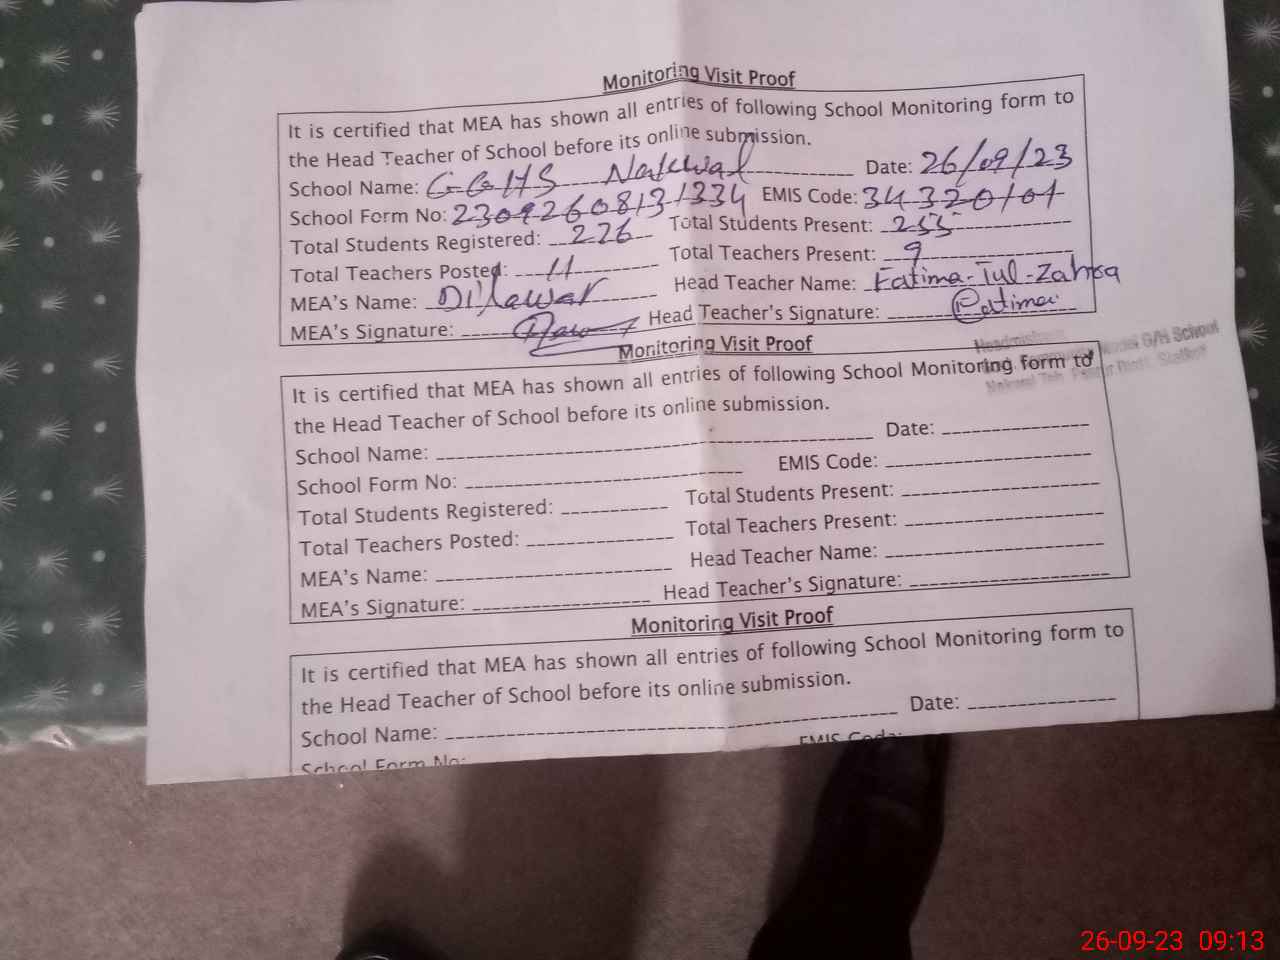 Monitoring Visit Proof
It is certified that MEA has shown all entries of following School Monitoring form to
the Head Teacher of School before its online submission.
School Name: GGHS Natewal Date: 26/09/23
School Form No: 23092608131334 EMIS Code: 34320101
Total Students Registered: 226 Total Students Present: 255
Total Teachers Posted: 11 Total Teachers Present: 9
MEA's Name: Dilawar Head Teacher Name: Fatima-Tul-Zahra
MEA's Signature: Head Teacher's Signature: Fatima
Monitoring Visit Proof
Model G/H School
It is certified that MEA has shown all entries of following School Monitoring form to
the Head Teacher of School before its online submission.
School Name: Date:
School Form No: EMIS Code:
Total Students Registered: Total Students Present:
Total Teachers Posted: Total Teachers Present:
MEA's Name: Head Teacher Name:
MEA's Signature: Head Teacher's Signature:
Monitoring Visit Proof
It is certified that MEA has shown all entries of following School Monitoring form to
the Head Teacher of School before its online submission.
School Name: Date:
School Form No: EMIS Code:
26-09-23 09:13